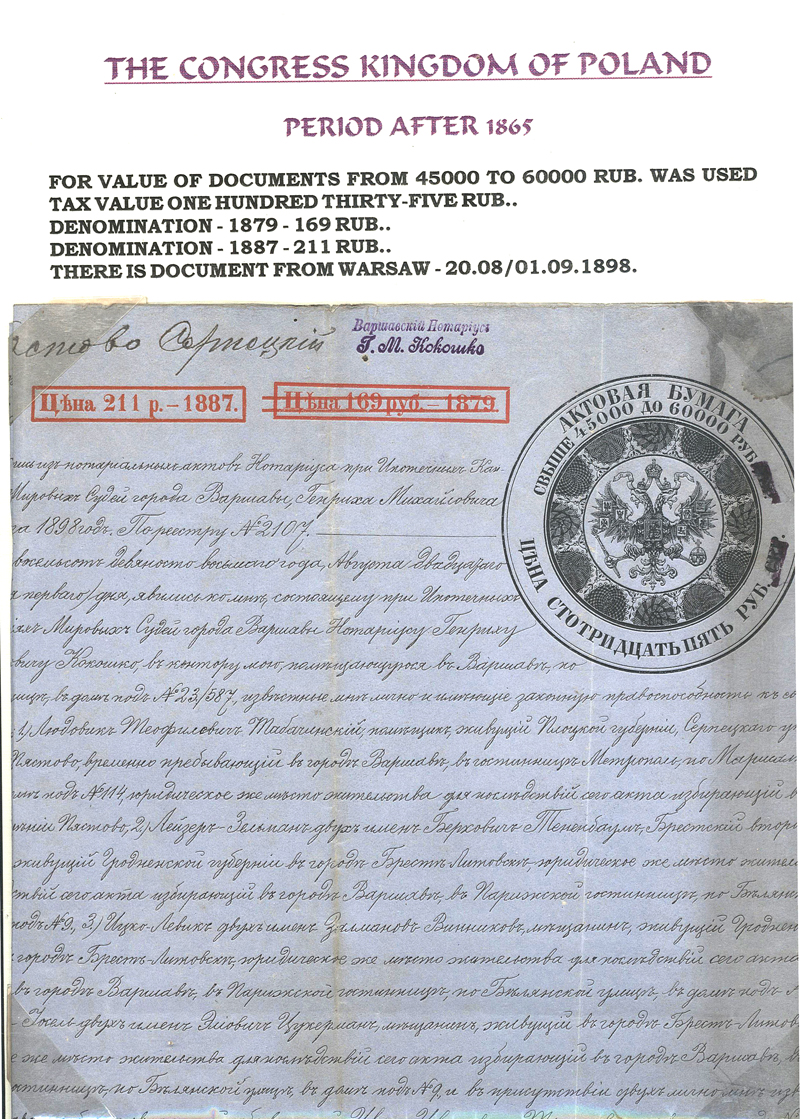 THE CONGRESS KINGDOM OF POLAND
PERIOD AFTER 1865
FOR VALUE OF DOCUMENTS FROM 45000 TO 60000 RUB. WAS USED
TAX VALUE ONE HUNDRED THIRTY-FIVE RUB..
DENOMINATION - 1879 - 169 RUB..
DENOMINATION - 1887 - 211 RUB..
THERE IS DOCUMENT FROM WARSAW - 20.08/01.09.1898.
Варшавскій Нотаріусъ
Г. М. Кокошко
Цѣна 211 р.–1887.
Цѣна 169 руб.–1879.
АКТОВАЯ БУМАГА
СВЫШЕ 45000 ДО 60000 РУБ.
ЦѢНА СТО ТРИДЦАТЬ ПЯТЬ РУБ.
изъ нотаріальныхъ актовъ Нотаріуса при Ипотечныхъ Ка-
Мировыхъ Судей города Варшавы, Генриха Михайловича
1898 годъ. По реестру № 2107.
девяносто восьмаго года, Августа двадцатаго
перваго) дня, явились ко мнѣ, состоящему при Ипотечныхъ
Мировыхъ Судей города Варшавы Нотаріусу Генриху
Кокошко, въ контору мою, помѣщающуюся въ Варшавѣ, по
въ домѣ подъ № 23/587, извѣстные мнѣ лично и имѣющіе законную правоспособность къ со
1) Людовикъ Теофиловичъ Табачинскій, помѣщикъ, живущій Плоцкой губерніи, Серпецкаго у
Пястово, временно пребывающій въ городѣ Варшавѣ, въ гостинницѣ Метрополь, по Маршал
подъ № 114, юридическое же мѣсто жительства для послѣдствій сего акта избирающій в
Пястово, 2) Лейзеръ-Зельманъ двухъ именъ Берковичъ Тененбаумъ, Брестскій втор
живущій Гродненской губерніи въ городѣ Брестъ-Литовскѣ, юридическое же мѣсто жител
сего акта избирающій въ городѣ Варшавѣ, въ Парижской гостинницѣ, по Бѣлян
подъ № 9, 3) Ицко-Левикъ двухъ именъ Зелмановъ Винниковъ, мѣщанинъ, живущій Гродне
городѣ Брестъ-Литовскѣ, юридическое же мѣсто жительства для послѣдствій сего акта
въ городѣ Варшавѣ, въ Парижской гостинницѣ, по Бѣлянской улицѣ, въ домѣ подъ №
двухъ именъ Цукерманъ, мѣщанинъ, живущій въ городѣ Брестъ-Литов
же мѣсто жительства для послѣдствій сего акта избирающій въ городѣ Варшавѣ, в
по Бѣлянской улицѣ, въ домѣ подъ № 9, и въ присутствіи двухъ лично мнѣ из